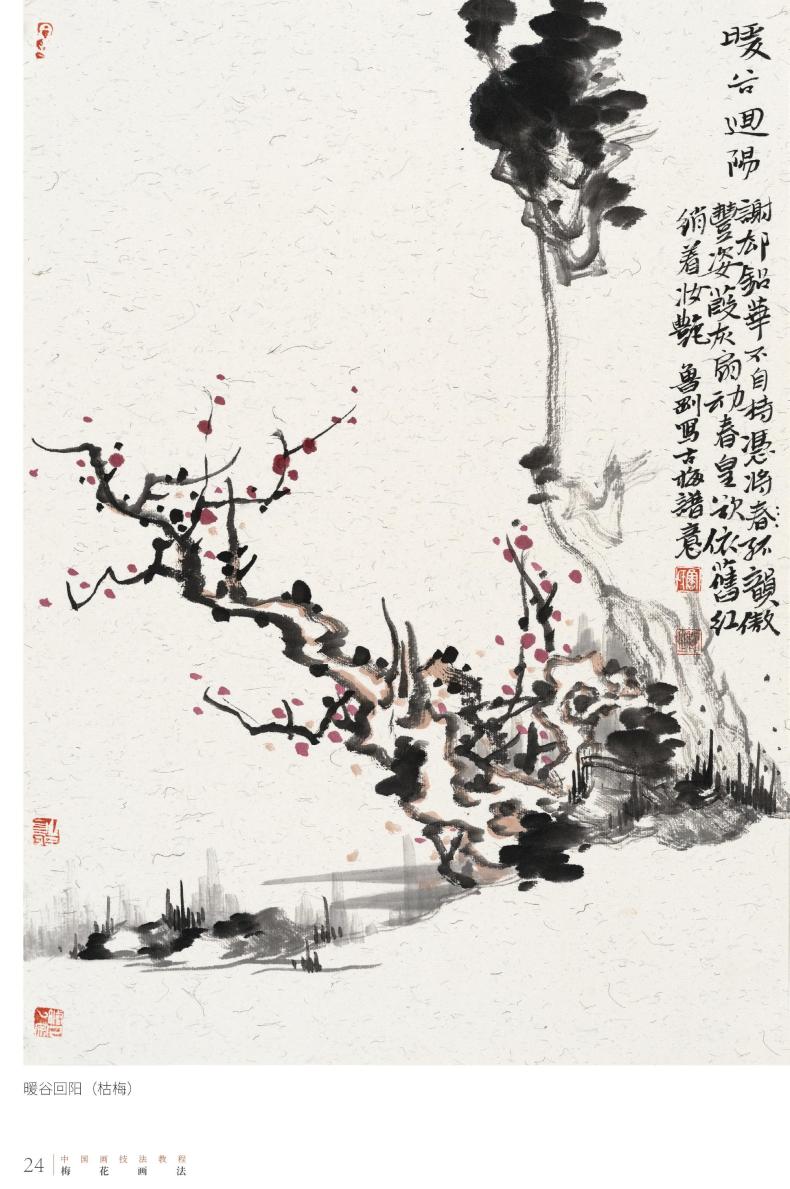 暖谷迴陽
謝却鉛華不自持憑將春孤韻傲
豐姿葭灰扇动春皇欲依舊紅
綃着汝艷 魯剛寫古梅譜意
暖谷回阳（枯梅）
24
中国画技法教程
梅花画法